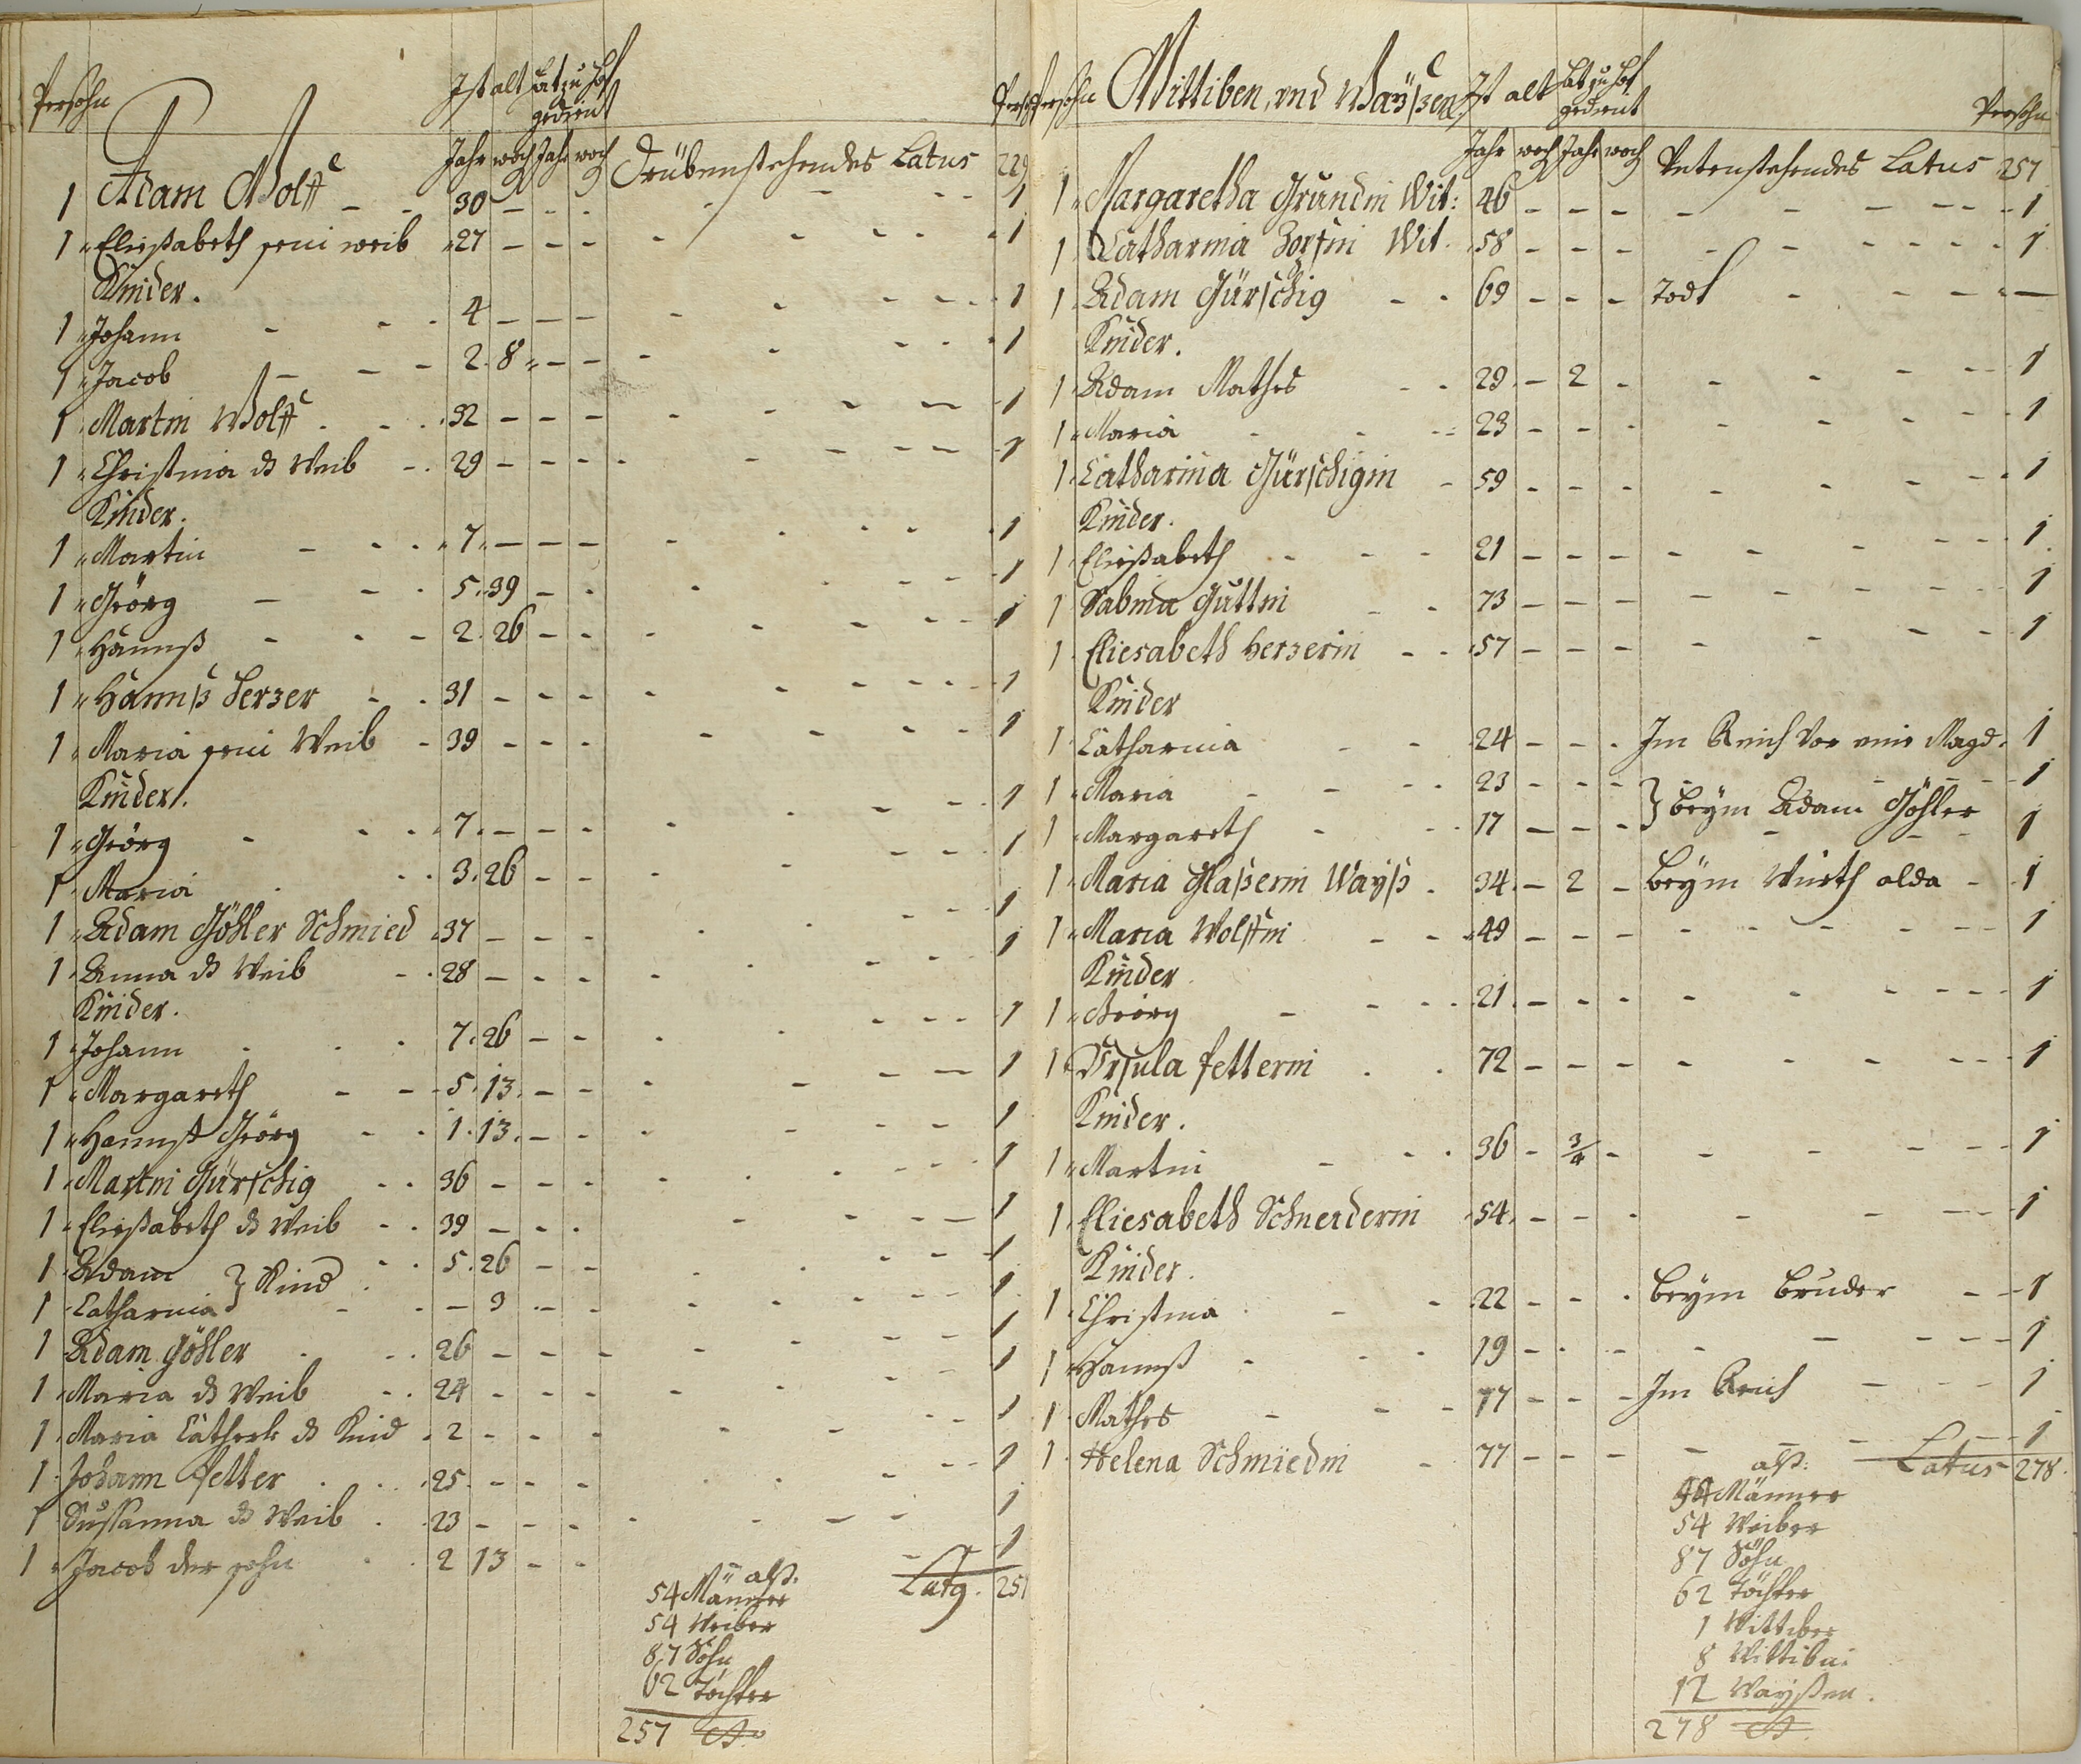 Persohn Ist alt hat zu Hof Pers
gedient
Jahr woch Jahr woch Drübenstehendes Latus 229
1 Adam Wolff - - 30 - - - 1
1 Eliesabeth sein weib 27 - - - 1
Kinder.
1 Johann - - 4 - - - 1
1 Jacob - - 2. 8 - - 1
1 Martin Wolff 32 - - - 1
1 Christina ds Weib 29 - - - 1
Kinder.
1 Martin - - 7 - - - 1
1 Geörg - - 5. 39 - - 1
1 Hannß - - 2. 26 - - 1
1 Hannß Herzer 31 - - - 1
1 Maria sein Weib 39 - - - 1
Kinder.
1 Geörg - - 7. - - - 1
1 Maria - - 3. 26 - - 1
1 Adam Göhler Schmied 37 - - - 1
1 Anna ds Weib 28 - - - 1
Kinder.
1 Johann - - 7. 26 - - 1
1 Margareth - - 5. 13. - - 1
1 Hannß Geörg - - 1. 13. - - 1
1 Martin Gürschig 36 - - - 1
1 Eliesabeth ds Weib 39 - - - 1
1 Adam } Kind 5. 26 - - 1
1 Catharina - 9 - - 1
1 Adam Göhler 26 - - - 1
1 Maria ds Weib 24 - - - 1
1 Maria Cather: ds Kind 2 - - - 1
1 Johann Fetter 25 - - - 1
1 Susanna ds Weib 23 - - - 1
1 Jacob der sohn 2 13 - - 1
Latg. 257
alß:
54 Männer
54 Weiber
87 Söhn
62 Töchter
257
Persohn Wittiben, und Waÿßen Ist alt hat zu Hof Persohn
gedient
Jahr woch Jahr woch Nebenstehendes Latus 257
1 Margaretha Gründin Wit: 46 - - - 1
1 Catharina Zorsin Wit. 58 - - - 1
1 Adam Gürschig - - 69 - - - Todt -
Kinder.
1 Adam Mathes - - 29. - 2 - 1
1 Maria 23 - - - 1
1 Catharina Gürschigin - 59 - - - 1
Kinder.
1 Eliesabeth - - 21 - - - 1
1 Sabina Guttin - - 73 - - - 1
1 Eliesabeth Herzerin - - 57 - - - 1
Kinder
1 Catharina - - 24 - - - Im Reich vor eine Magd. 1
1 Maria - - 23 - - - 1
} beÿm Adam Göhler
1 Margareth - - 17 - - - 1
1 Maria Glaßerin Waÿß. 34. - 2 - beÿm Würth alda - 1
1 Maria Wolffin - - 49 - - - 1
Kinder
1 Geörg - - 21. - - - 1
1 Ursula Fetterin 72 - - - 1
Kinder.
1 Martin - - 36 - 3/4 - 1
1 Eliesabeth Schneiderin 54. - - - 1
Kinder.
1 Christina - - 22 - - - beÿm Bruder - - 1
1 Hannß - - 19 - - - 1
1 Mathes - - 17 - - - Im Reich - - 1
1 Helena Schmiedin - 77 - - - 1
Latus 278.
alß:
54 Männer
54 Weiber
87 Söhn
62 Töchter
1 Wittiber
8 Wittibin
12 Waÿßen.
278